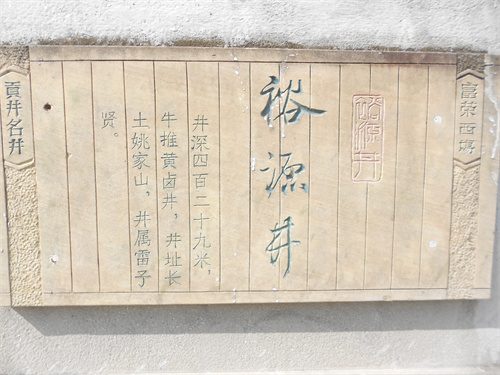 富荣西場
裕源井
裕源井
井深四百二十九米，
牛推黄卤井，井址长
土姚家山，井属雷子
贤。
貢井名井